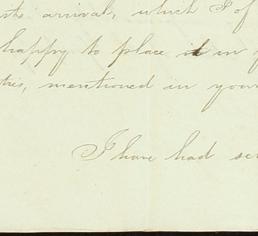 its arrival, which I of
happy to place it in y
ties, mentioned in your
I have had se